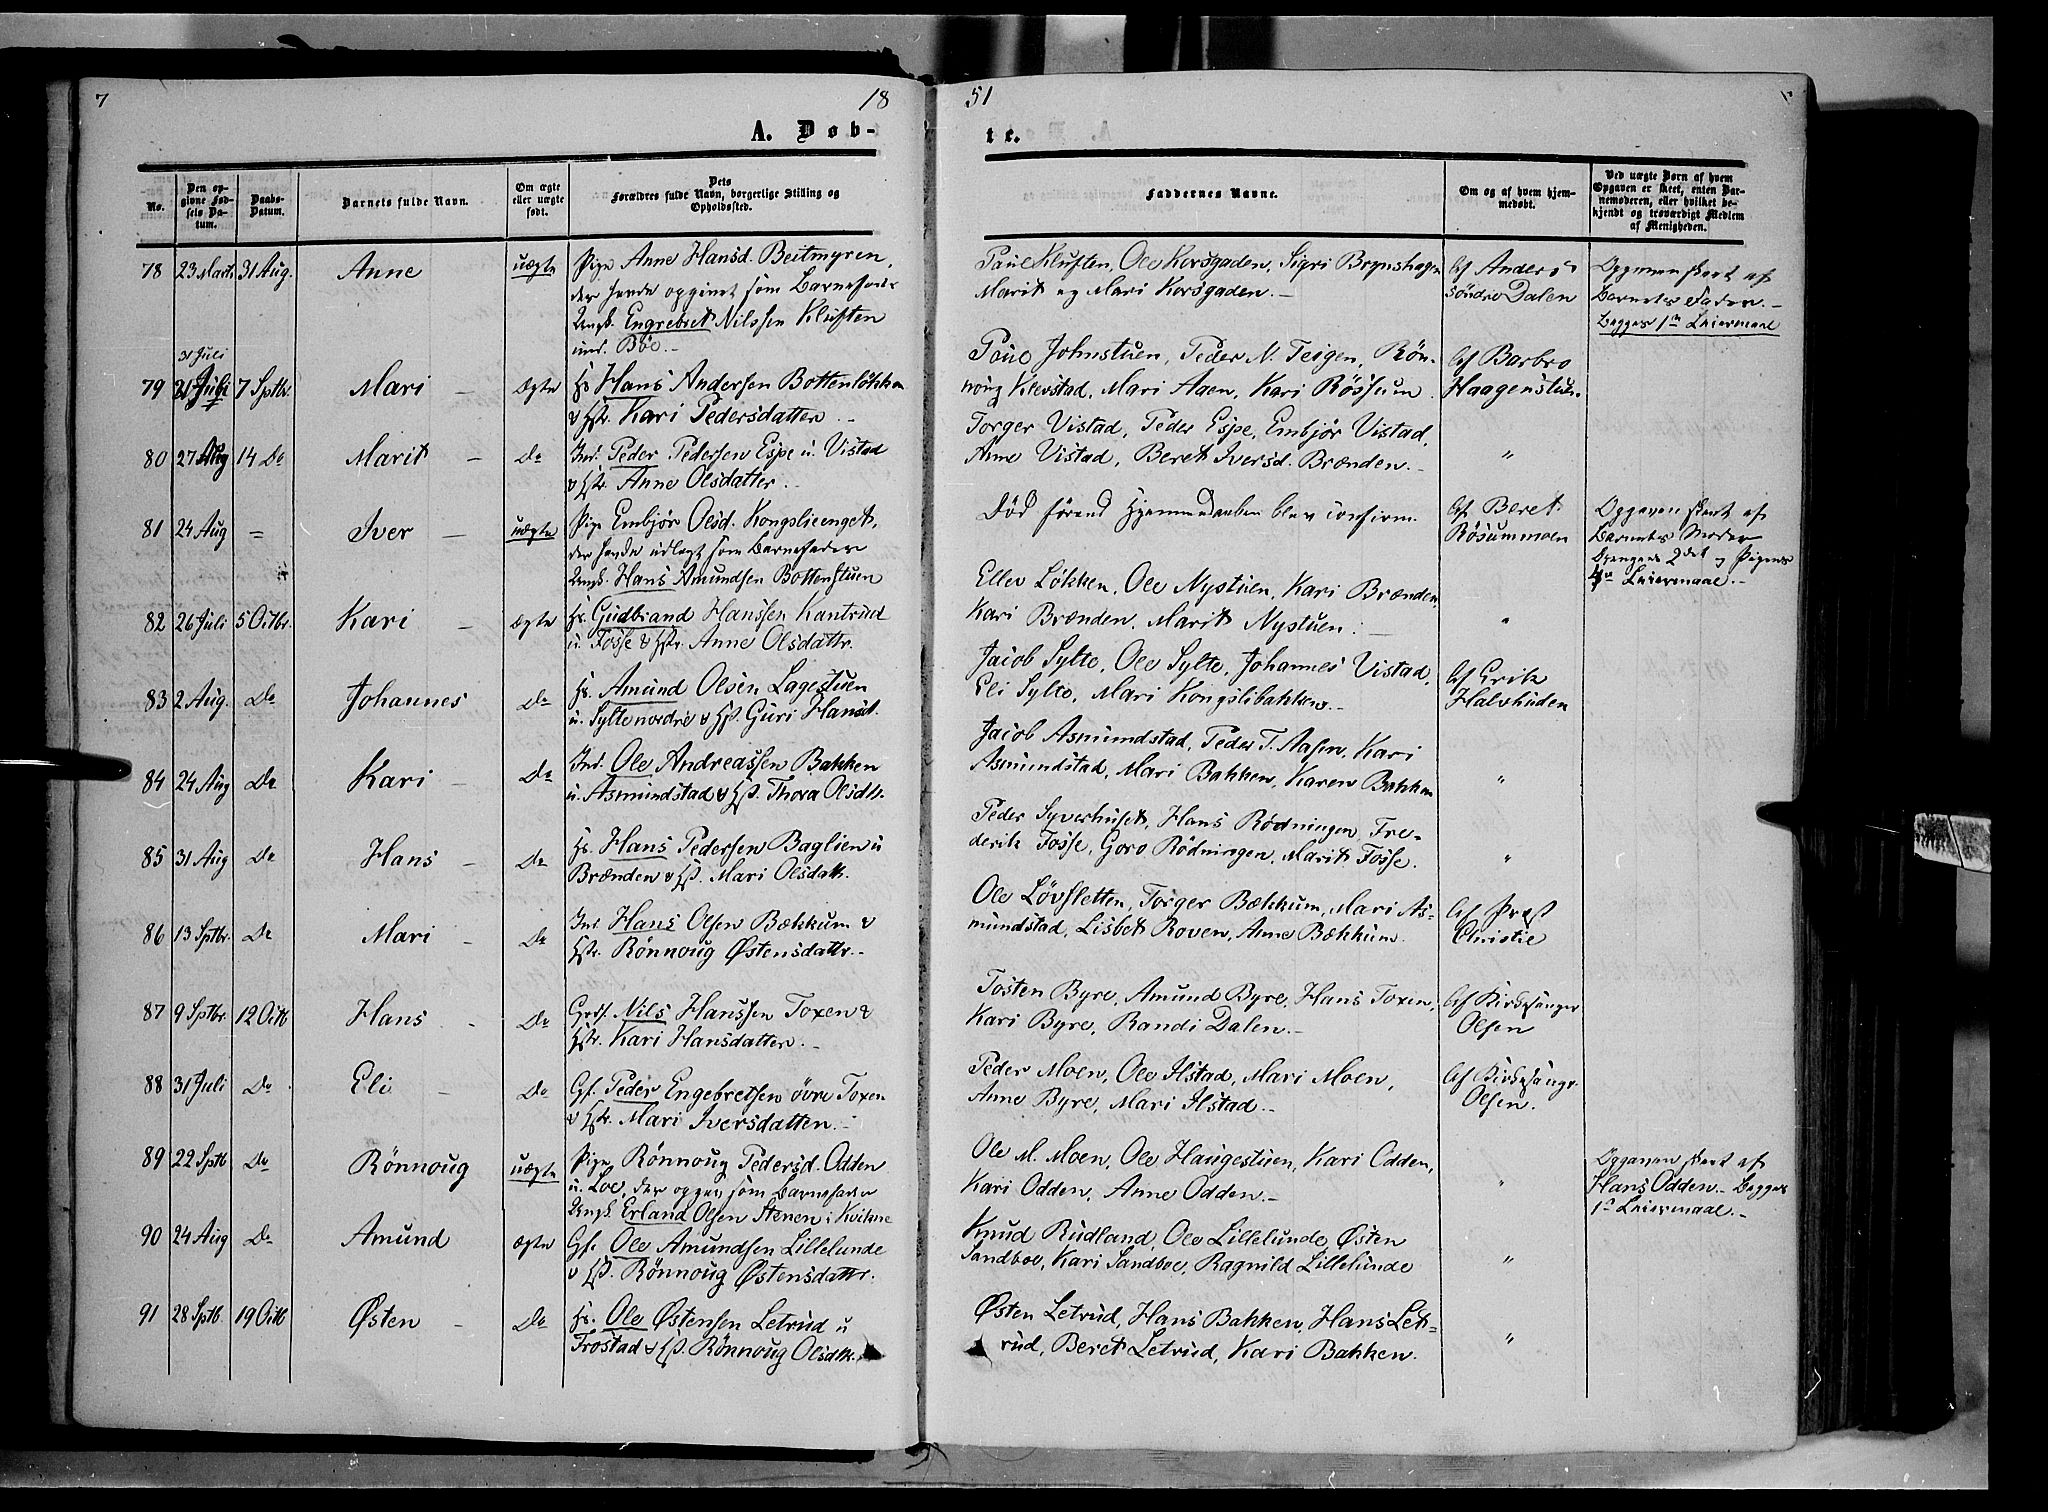 7
18
51
A. Døb-
te.
No.
Den opgivne Fødsels Datum.
Daabs-Datum.
Barnets fulde Navn.
Om ægte eller uægte født.
Dets Forældres fulde Navn, borgerlige Stilling og Opholdssted.
Faddernes Navne.
Om og af hvem hjemmedøbt.
Ved uægte Børn af hvem Opgaven er skeet, enten Barnemoderen, eller hvilket bekjendt og troværdigt Medlem af Menigheden.
78 23 Marts 31 Aug. Anne uægte Pige Anne Hansd. Beitmyren,
der havde opgivet som Barnefader
Ungk. Engebret Nilssen Kluften
und. Bøe.
Poul Kluften, Ole Korsgaden, Sigri Brynshagen
Marit og Mari Korsgaden.
Af Anders
søndre Dalen
Opgaven skeet af
Barnets Fader.
Begges 1ste Leiermaal
31 Juli
79 21 Juli 7 Septbr. Mari ægte Hs Hans Andersen Bottenløkken
& Hstr. Kari Pedersdatter.
Poul Johnstuen, Peder N. Teigen, Røn-
noug Klevstad, Mari Aaen, Kari Røssum.
Af Barbro
Haagenstuen.
80 27 Aug 14 Do Marit Do Ind. Peder Pedersen Espe u. Vistad
& Hstr. Anne Olsdatter.
Torger Vistad, Peder Espe, Embjør Vistad,
Anne Vistad, Beret Iversd. Brænden.
"
81 24 Aug = Iver uægte Pige Embjør Olsd. Kongslieenget,
der havde udlagt som Barnefader
Ungk. Hans Amundsen Bottenstuen
Død førend Hjemmedaaben blev confirm.
Af Beret
Røsummoen
Opgaven skeet af
Barnets Moder
Drengens 2det og Pigens
Leiermaal.
82 26 Juli 5 Octbr. Kari ægte Hs. Gudbrand Hanssen Kantrud
u. Fosse & Hstr. Anne Olsdattr.
Ellev Løkken, Ole Nystuen, Kari Brænden,
Kari Brænden, Marit Nystuen.
"
83 2 Aug. Do Johannes Do Hs. Amund Olsen Lagestuen
u. Sylte nordre & Hst. Guri Hansd.
Jacob Sylte, Ole Sylte, Johannes Vistad,
Eli Sylte, Mari Kongslibakken.
Af Erik
Halvhuden
84 24 Aug Do Kari Do Ind. Ole Andreassen Bakken
u. Asmundstad & Hst. Thora Olsdtr.
Jacob Asmundstad, Peder T. Aasen, Kari
Asmundstad, Mari Bakken, Karen Bakken
"
85 31 Aug Do Hans Do Hs. Hans Pedersen Baglien u
Brænden & Hst. Mari Olsdattr.
Peder Syverhuset, Hans Rødningen, Fre-
derik Fosse, Goro Rødningen, Marit Fosse.
"
86 13 Septbr. Do Mari Do Ind Hans Olsen Bækkum &
Hstr. Rønnoug Østensdattr.
Ole Løvsletten, Torger Bækkum, Mari As-
mundstad, Lisbet Roven, Anne Bækkum.
Af Præst
Christie
87 9 Septbr. 12 Octb Hans Do Grdf. Nils Hanssen Toxen &
Hstr. Kari Hansdatter.
Tosten Byre, Amund Byre, Hans Toxen,
Kari Byre, Randi Dalen.
Af Kirkesanger
Olsen
88 31 Juli Do Eli Do Gf. Peder Engebretsen øvre Toxen
& Hstr. Mari Iversdatter.
Peder Moen, Ole Ilstad, Mari Moen,
Anne Byre, Mari Ilstad.
Af Kirkesangr.
Olsen.
89 22 Septb Do Rønnoug uægte Pige Rønnoug Pedersd. Odden
u. Loe, der opgav som Barnefader
Ungk. Erland Olsen Stenen i Kvikne
Ole M. Moen, Ole Haugestuen, Kari Odden,
Kari Odden, Anne Odden.
"
Opgaven skeet af
Hans Odden. Begges
1ste Leiermaal.
90 24 Aug Do Amund ægte Gf. Ole Amundsen Lillelunde
& Hst. Rønnoug Østensdattr.
Knud Rudland, Ole Lillelunde, Østen
Sandboe, Kari Sandboe, Ragnild Lillelunde
"
91 28 Septb. 19 Octb Østen Do Hs. Ole Østensen Letrud u
Frostad & Hst. Rønnoug Olsdtr.
Østen Letrud, Hans Bakken, Hans Let-
rud, Beret Letrud, Kari Bakken.
"